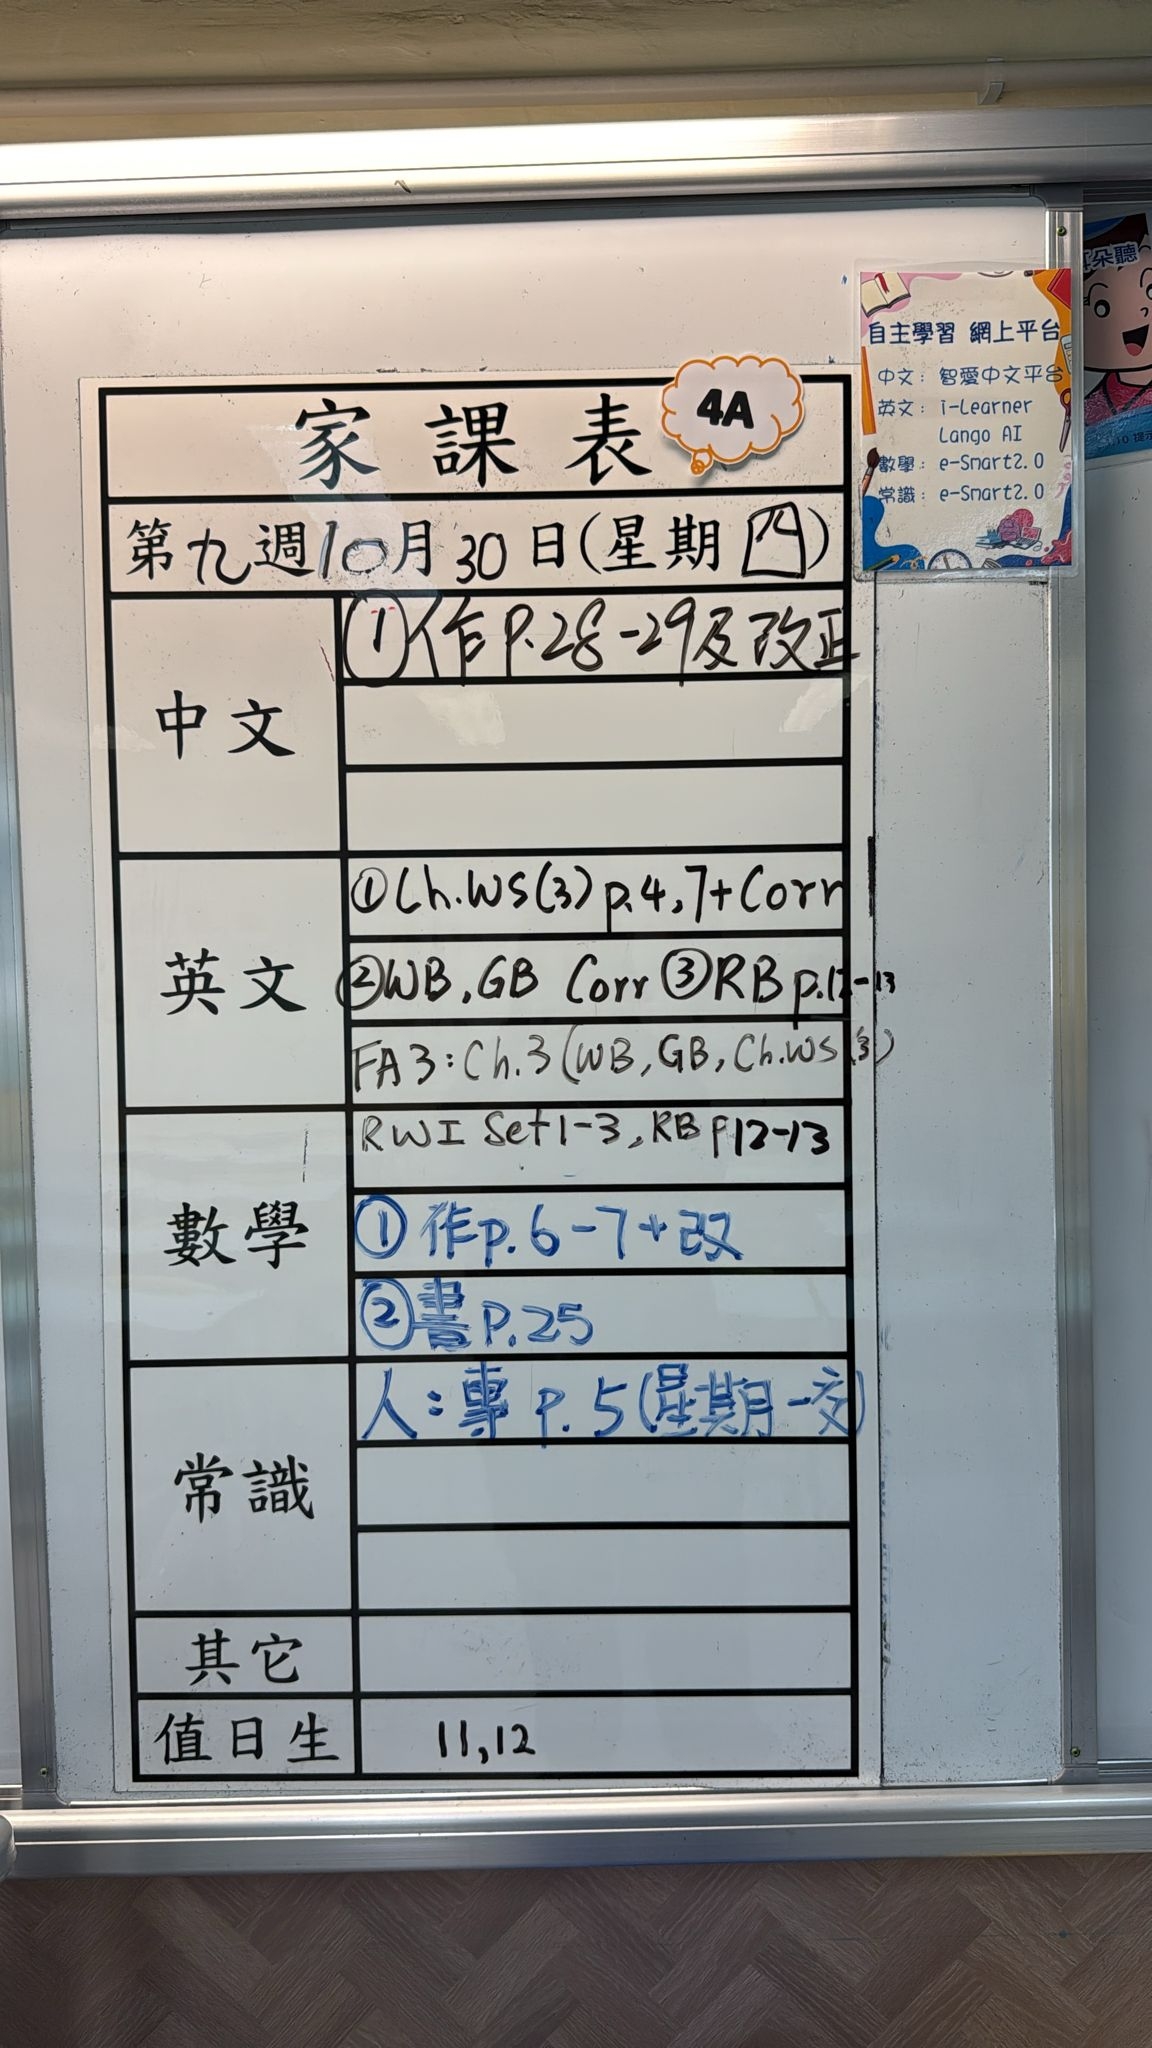 家課表
4A
第九週10月30日(星期四)
中文
①作p.28-29及改正
英文
①Ch.WS(3)p.4,7+Corr
②WB,GB Corr ③RB p.12-13
FA3:Ch.3(WB,GB,Ch.WS(3)
RWI Set1-3,RB p12-13
數學
①作p.6-7+改
②書p.25
常識
人:專p.5(星期一交)
其它
值日生
11,12
自主學習 網上平台
中文:智愛中文平台
英文:i-Learner
Lango AI
數學:e-Smart2.0
常識:e-Smart2.0
朵聽